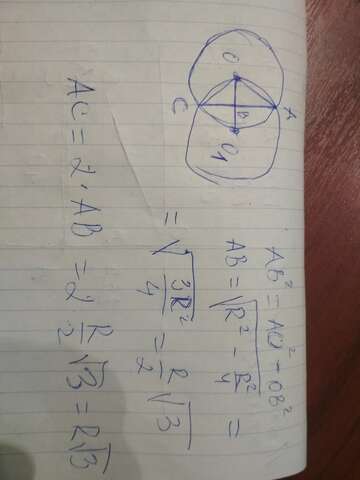 O
C
B
A
O₁
AB² = AO² - OB²
AB = √(R² - R²/4) =
= √(3R²/4) = R/2 √3
AC = 2 · AB = 2 R/2 √3 = R√3